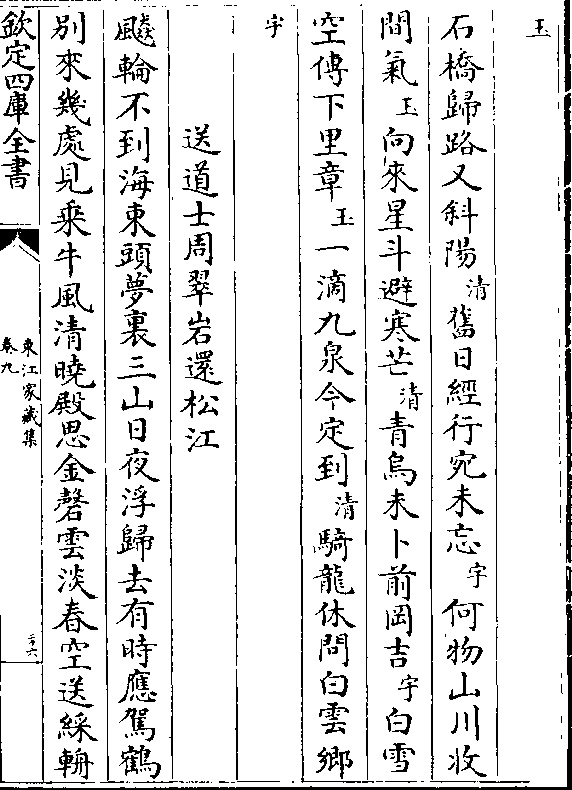 玉
石橋歸路又斜陽清舊日經行宛未忘字何物山川收
間氣玉向來星斗避寒芒清青烏未卜前岡吉字白雪
空傳下里章玉一滴九泉今定到清騎龍休問白雲鄉
字
送道士周翠岩還松江
飈輪不到海東頭夢裏三山日夜浮歸去有時應駕鶴
別來幾處見乘牛風清曉殿思金磬雲淡春空送綵輈
欽定四庫全書
東江家藏集
卷九
三六